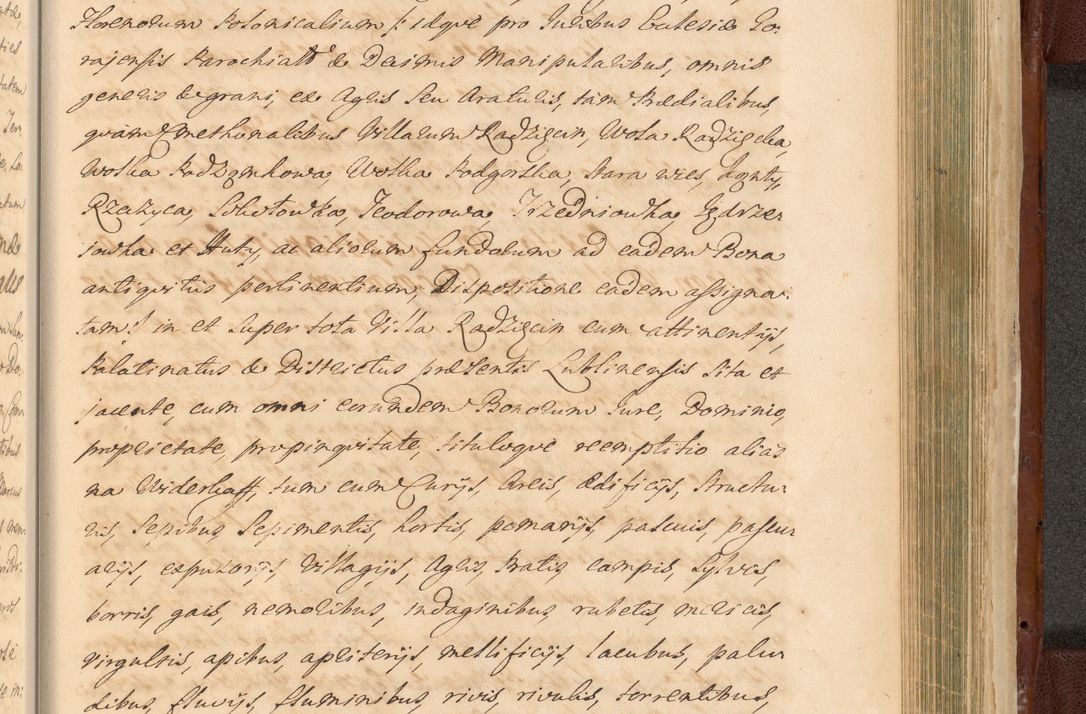 Florenorum Polonicalium /: idque pro Juribus Ecclesiæ Go-
rajensis Parochiali & Decimis Manipularibus, omnis
generis & grani, ex Agris seu Araturis, tam Prædialibus,
quàm Cmethonalibus Villarum Radzięcin, Wola Radzięcka,
Wolka Radzęnkowa, Wolka Podgorska, Stara wies, Kąnty,
Rzeżyca, Sokołowka, Teodorowa, Trzedniowka, Jędrzer
iowka et Huty, ac aliorum fundorum ad eadem Bona
antiquitus pertinentium, Dispositione eadem assigna-
tam :/ in et super tota Villa Radzięcin cum attinentijs,
Palatinatus & Districtus præsentis Lublinensis sita et
jacente, cum omni eorundem Bonorum Jure, Dominio,
proprietate, propinquitate, tituloque reemptitio alias
na Widerkaff, tum cum Curijs, Areis, ædificijs, Structu-
ris, Sepibus Sepimentis, hortis, pomarijs, pascuis, pascu-
arijs, expulsorijs Villagijs, Agris, Pratis, campis, Sylvis,
borris, gais, nemoribus, indaginibus, rubetis, mericis,
virgultis, apibus, apristerijs, mellificijs, lacubus, palu-
dibus, fluvijs, fluminibus, rivis, rivulis, torrentibus,